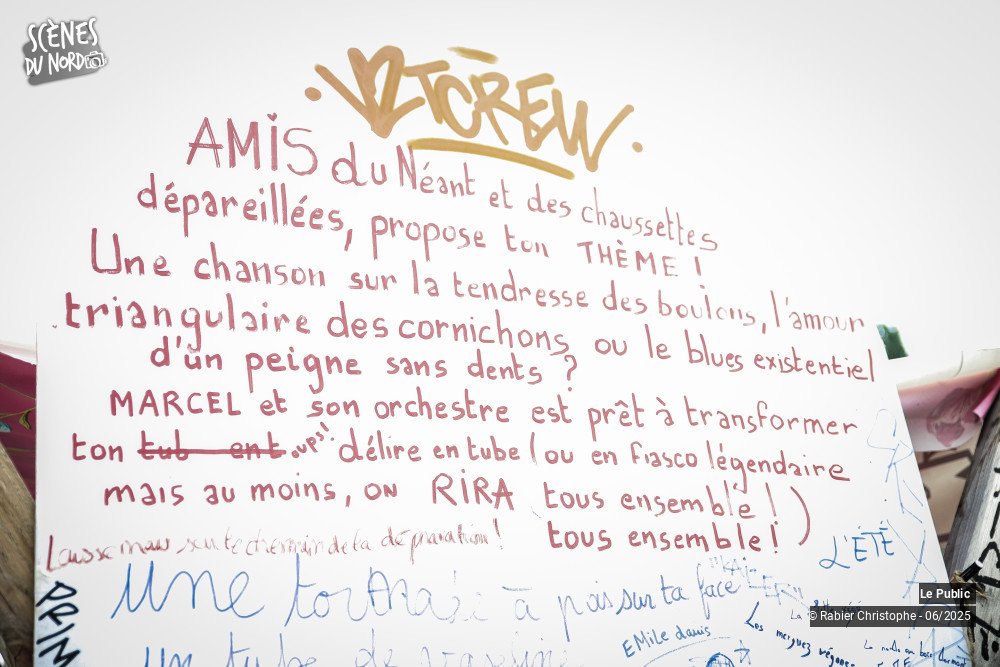 SCÈNES
DU NORD
V2TCREW
AMIS du Néant et des chaussettes
dépareillées, propose ton THÈME !
Une chanson sur la tendresse des boulons, l'amour
triangulaire des cornichons ou le blues existentiel
d'un peigne sans dents ?
MARCEL et son orchestre est prêt à transformer
ton tub ent ups! délire en tube (ou en fiasco légendaire
mais au moins, on RIRA tous ensemble !)
tous ensemble !
chemin de la dépravation !
L'ÉTÉ
une à pois sur ta face
un tube de vaseline
EMile danis
Les merguez
Le Public
© Rabier Christophe - 06/2025